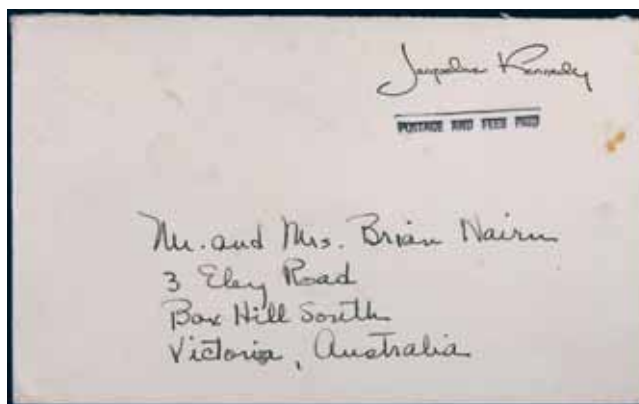 Jacqueline Kennedy
POSTAGE AND FEES PAID
Mr. and Mrs. Brian Nairn
3 Eley Road
Box Hill South
Victoria, Australia